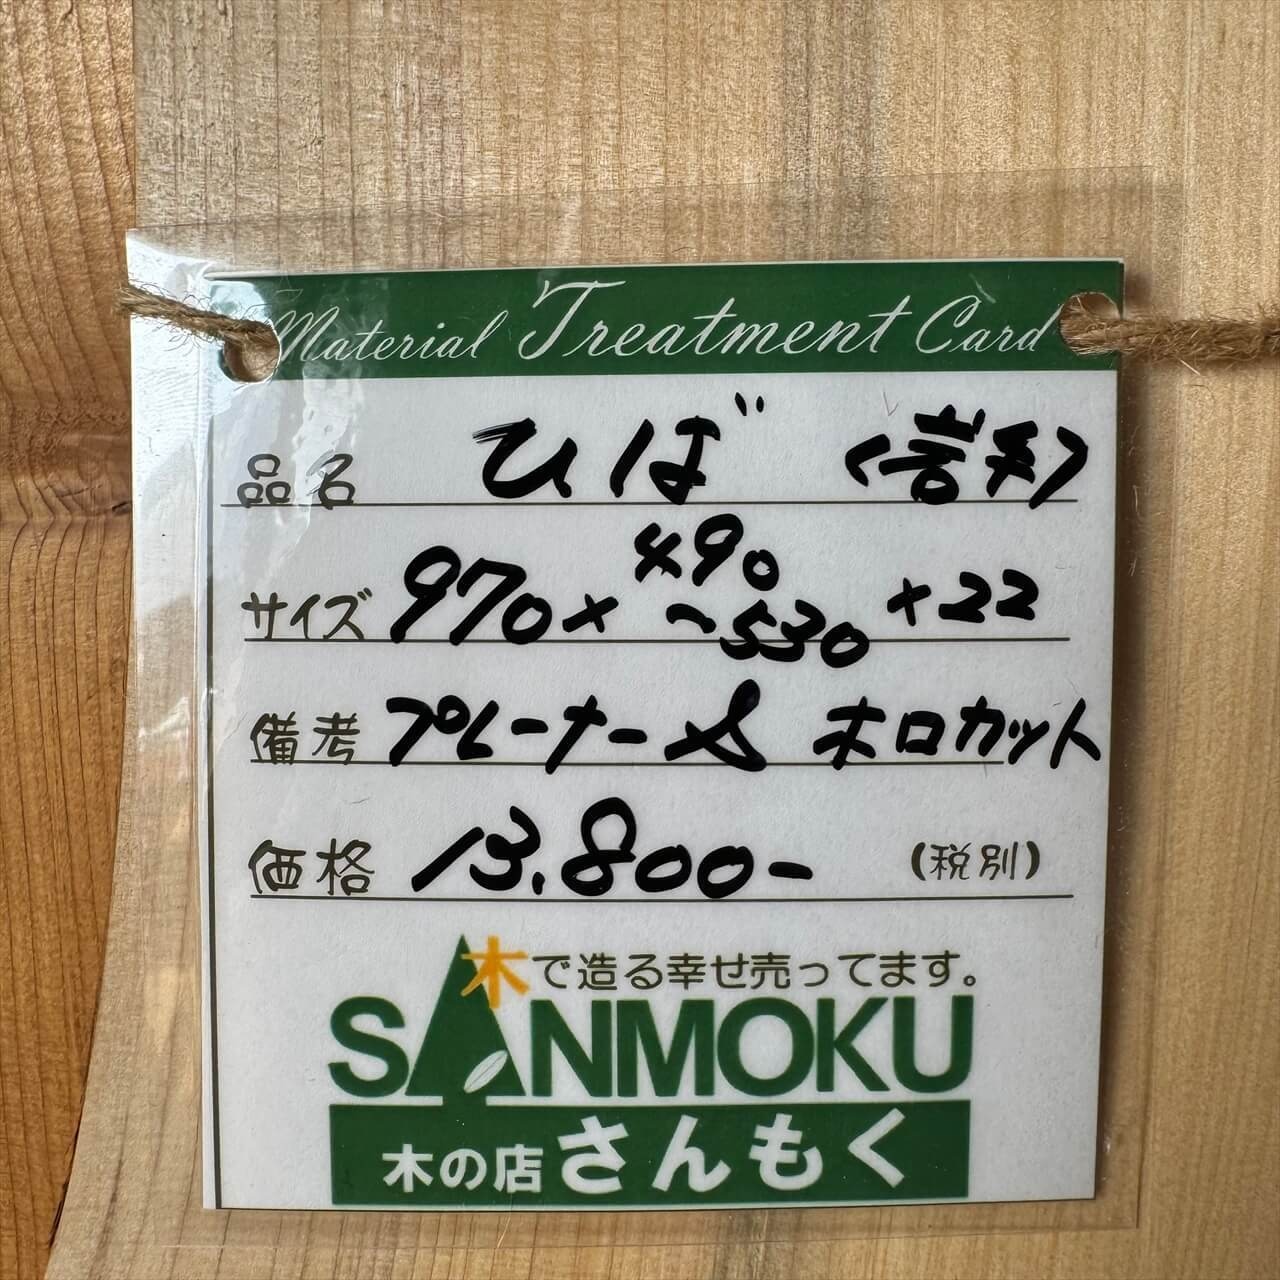 Material Treatment Card
品名 ひば (岩手)
サイズ 970× 490 ~530 ×22
備考 プレーナー ホロカット
価格 13,800- (税別)
木で造る幸せ売ってます。
SANMOKU
木の店 さんもく